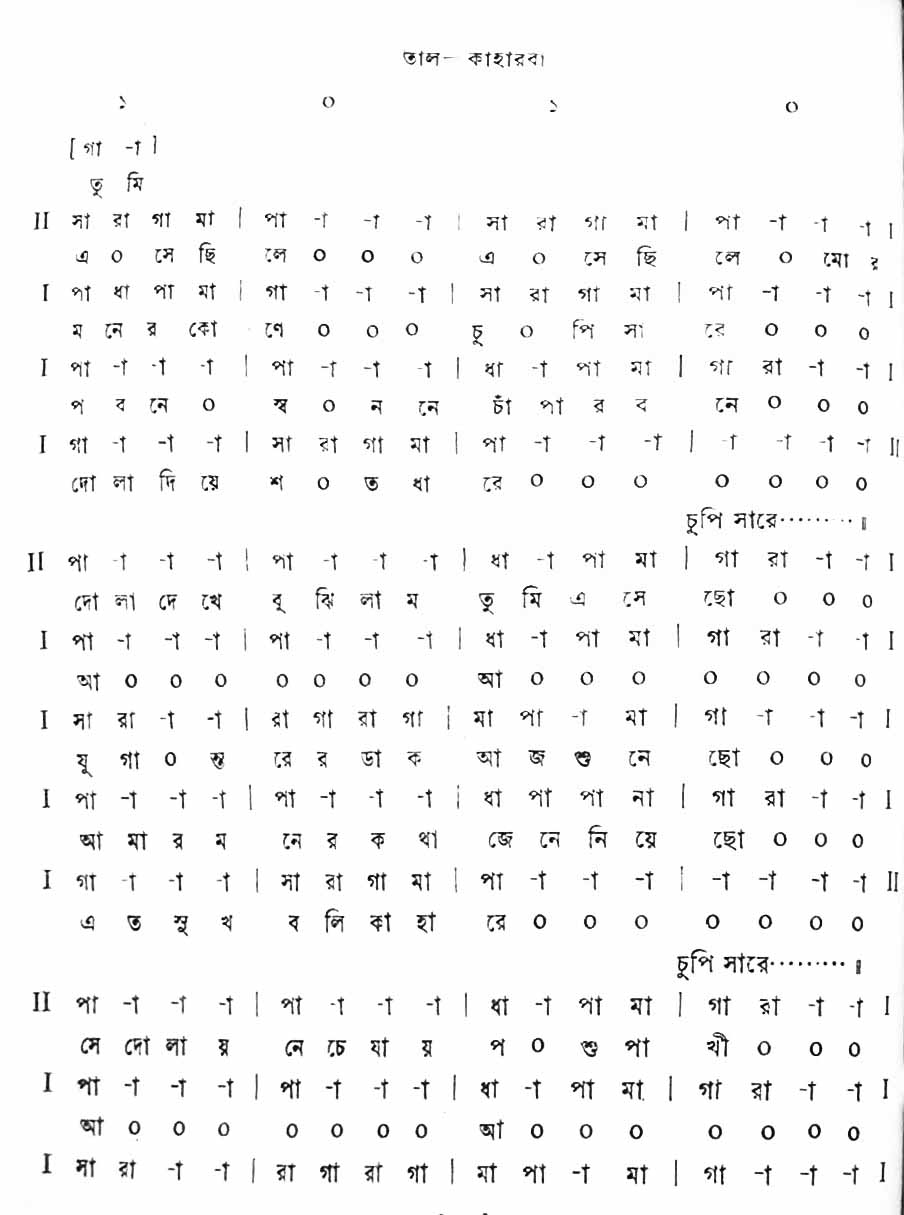 তাল— কাহারবা
১ ০ ১ ০
[ গা -া ]
তু মি
II সা রা গা মা | পা -া -া -া | সা রা গা মা | পা -া -া -া I
এ ০ সে ছি লে ০ ০ ০ এ ০ সে ছি লে ০ মো র
I পা ধা পা মা | গা -া -া -া | সা রা গা মা | পা -া -া -া I
ম নে র কো ণে ০ ০ ০ চু ০ পি সা রে ০ ০ ০
I পা -া -া -া | পা -া -া -া | ধা -া পা মা | গা রা -া -া I
প ব নে ০ স্ব ০ ননে চাঁ পা র ব নে ০ ০ ০
I গা -া -া -া | সা রা গা মা | পা -া -া -া | -া -া -া -া II
দো লা দি য়ে শ ০ ত ধা রে ০ ০ ০ ০ ০ ০ ০
চুপি সারে········· ॥
II পা -া -া -া | পা -া -া -া | ধা -া পা মা | গা রা -া -া I
দো লা দে খে বু ঝি লা ম তু মি এ সে ছো ০ ০ ০
I পা -া -া -া | পা -া -া -া | ধা -া পা মা | গা রা -া -া I
আ ০ ০ ০ ০ ০ ০ ০ আ ০ ০ ০ ০ ০ ০ ০
I সা রা -া -া | রা গা রা গা | মা পা -া মা | গা -া -া -া I
যু গা ০ ন্ত রে র ডা ক আ জ শু নে ছো ০ ০ ০
I পা -া -া -া | পা -া -া -া | ধা পা পা না | গা রা -া -া I
আ মা র ম নে র ক থা জে নে নি য়ে ছো ০ ০ ০
I গা -া -া -া | সা রা গা মা | পা -া -া -া | -া -া -া -া II
এ ত সু খ ব লি কা হা রে ০ ০ ০ ০ ০ ০ ০
চুপি সারে········· ॥
II পা -া -া -া | পা -া -া -া | ধা -া পা মা | গা রা -া -া I
সে দো লা য় নে চে যা য় প ০ শু পা খী ০ ০ ০
I পা -া -া -া | পা -া -া -া | ধা -া পা মা | গা রা -া -া I
আ ০ ০ ০ ০ ০ ০ ০ আ ০ ০ ০ ০ ০ ০ ০
I সা রা -া -া | রা গা রা গা | মা পা -া মা | গা -া -া -া I